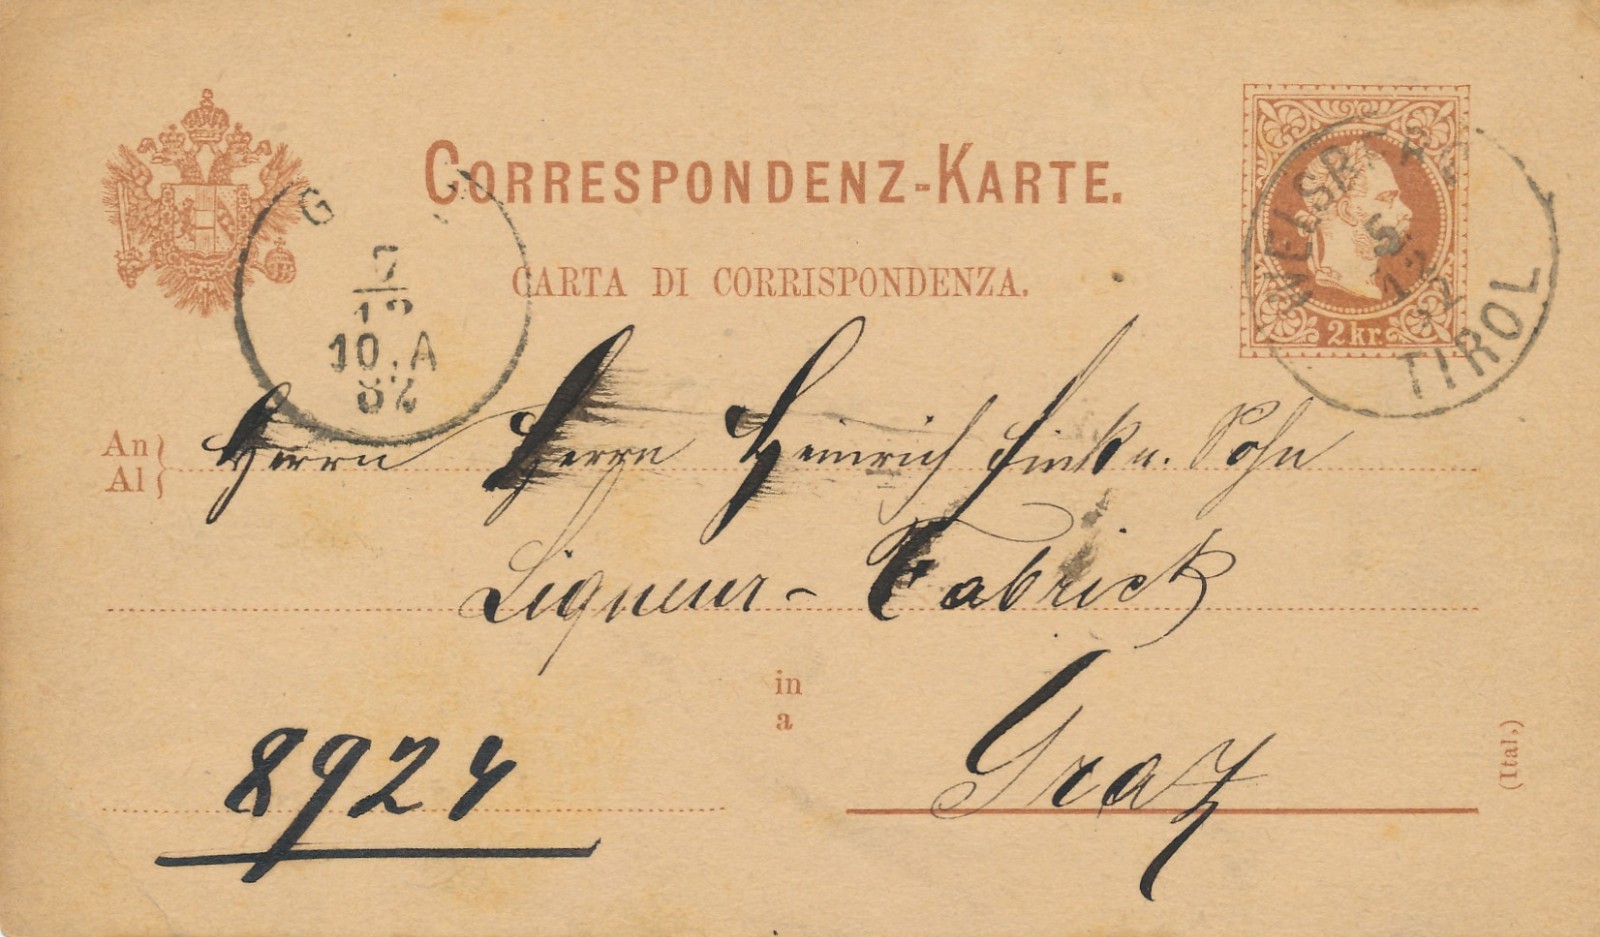 CORRESPONDENZ-KARTE.
CARTA DI CORRISPONDENZA.
2 kr.
WELSBERG
5
12
82
TIROL
G
7
12
10.A
82
An
Al
Herrn Herrn Heinrich Fink u. Sohn
Liqueur-Fabrick
in
a
Graz
8924
(Ital.)